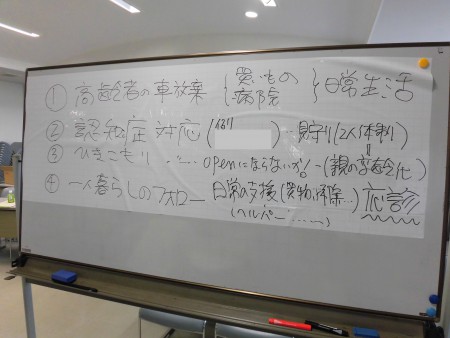 ① 高齢者の車放棄 { 買いもの 病院 } 日常生活
② 認知症対応 ( … 見守り(2人体制)
③ ひきこもり ……… openにならないから-(親の高齢化)
④ 一人暮らしのフォロー 日常の支援(買物、掃除…) 応診
(ヘルパー ……)